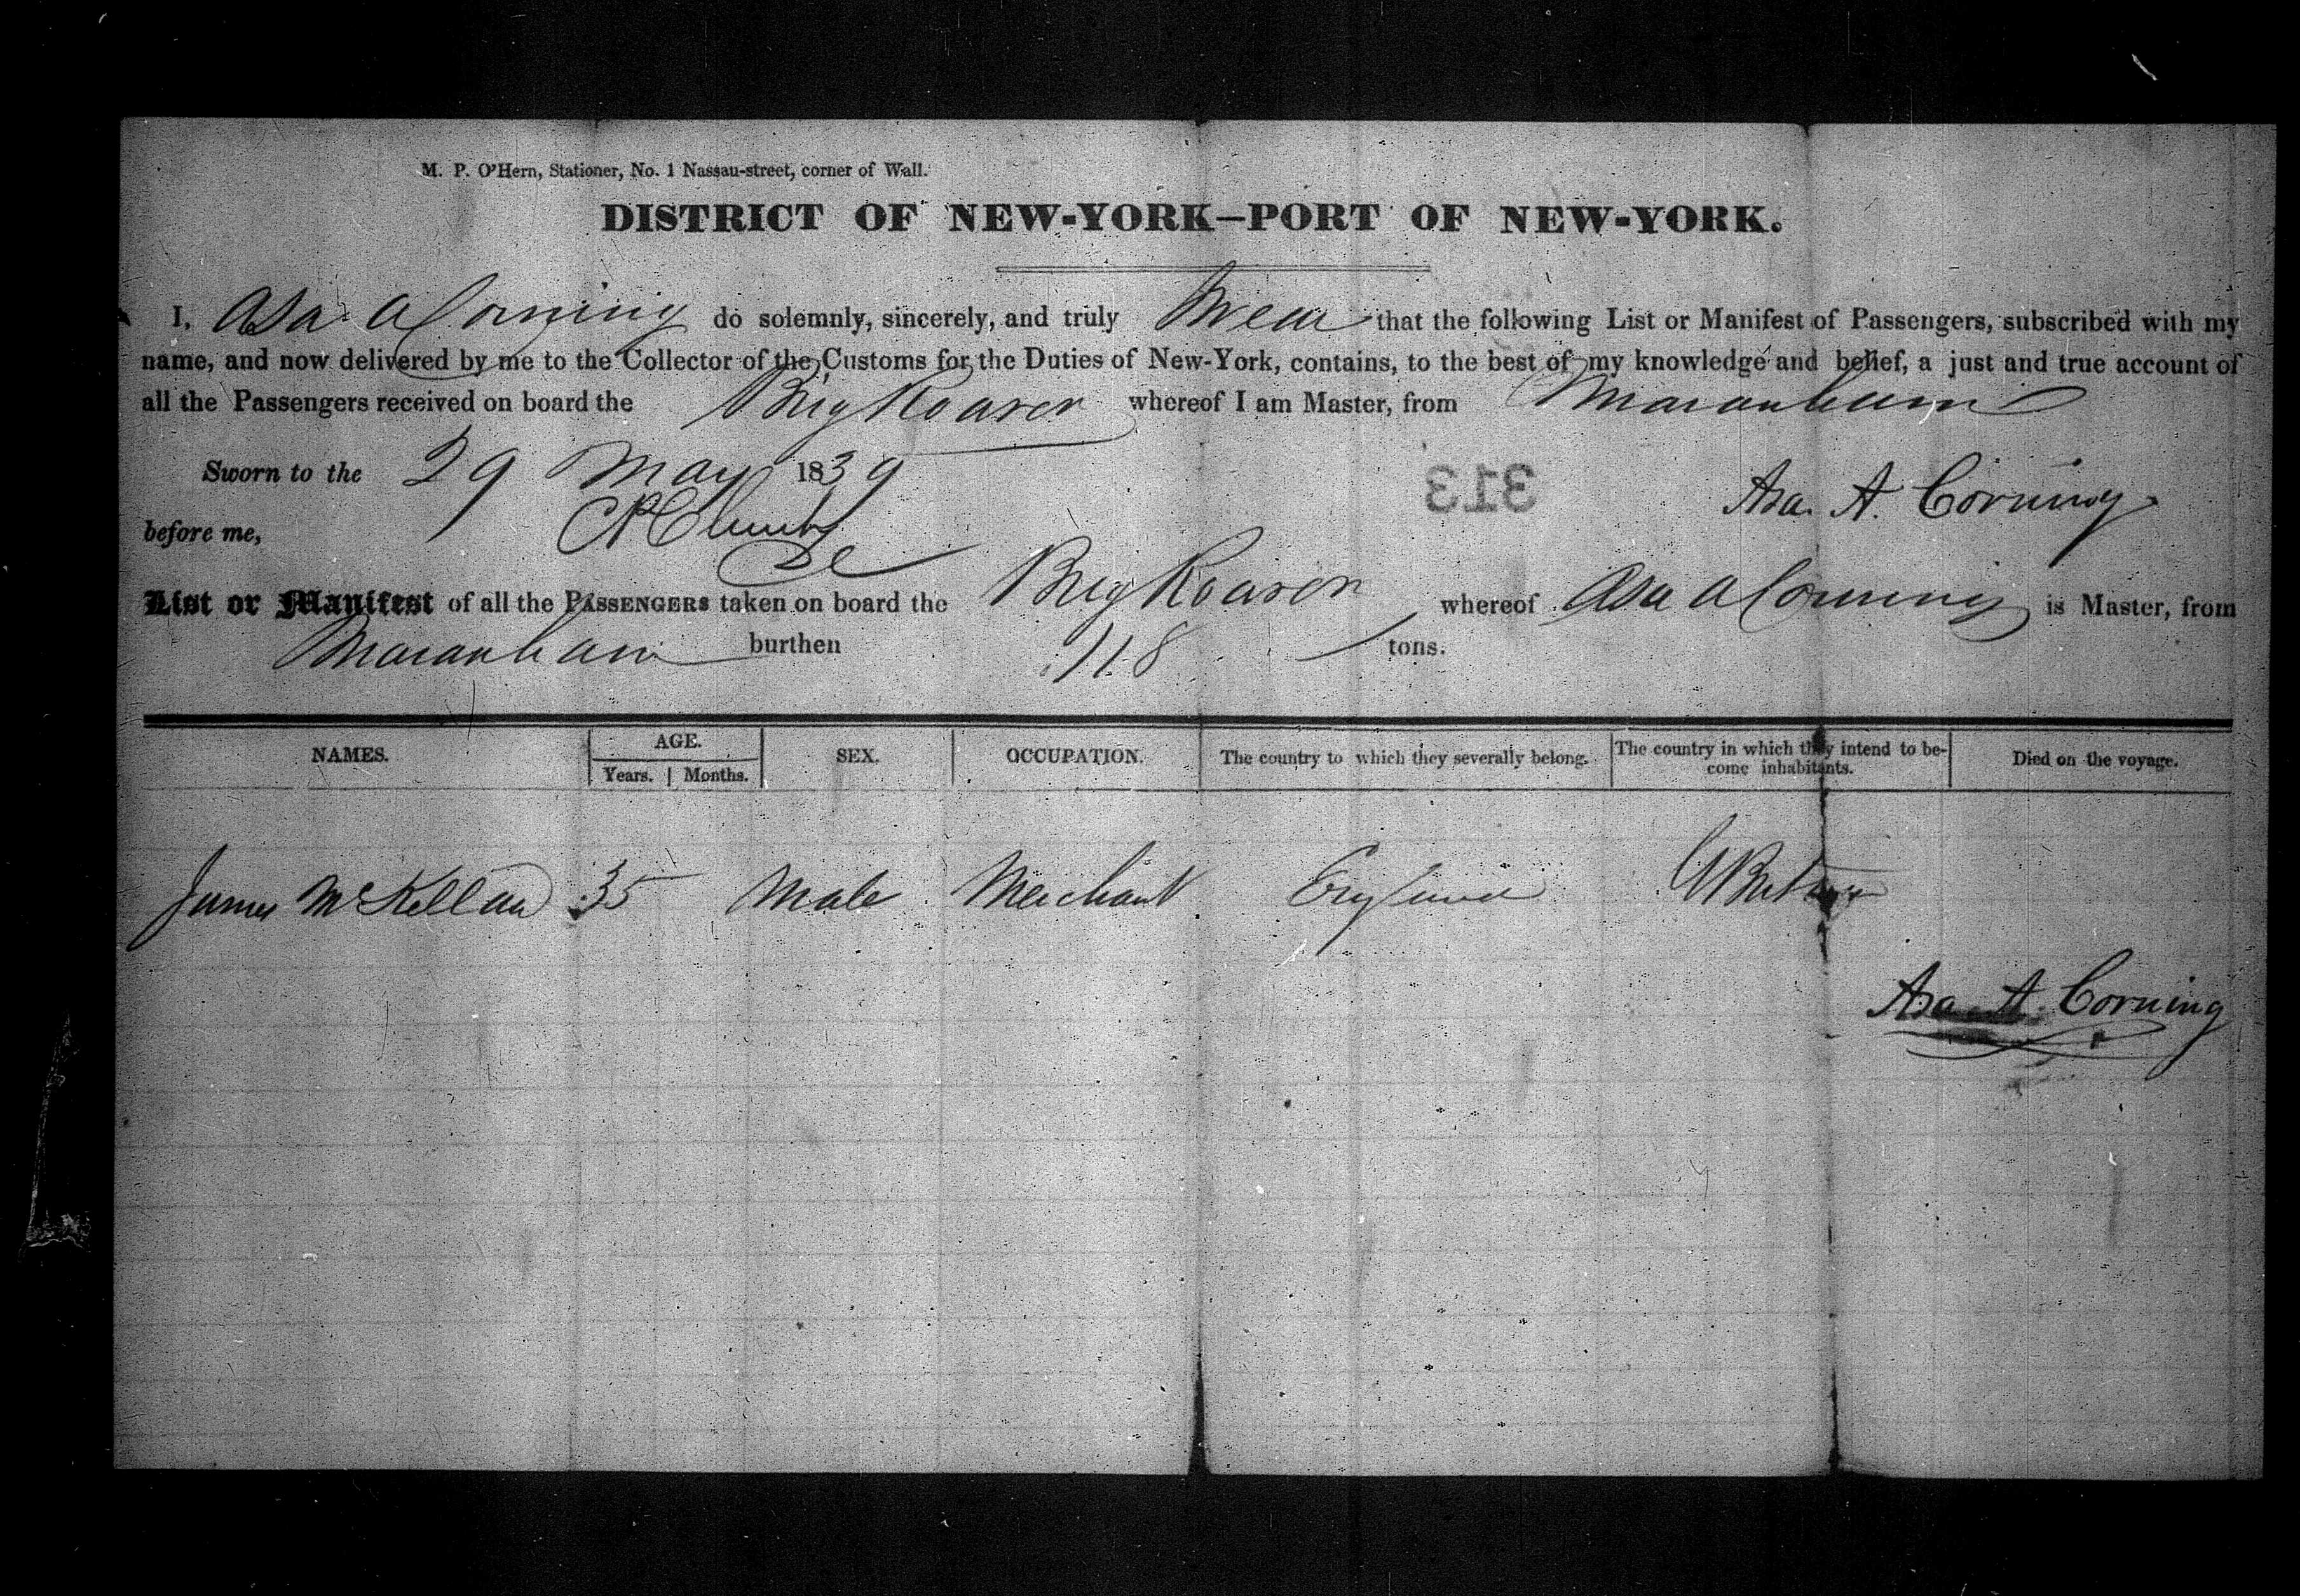 M. P. O'Hern, Stationer, No. 1 Nassau-street, corner of Wall.
DISTRICT OF NEW-YORK—PORT OF NEW-YORK.
I, Asa A Corning do solemnly, sincerely, and truly Swear that the following List or Manifest of Passengers, subscribed with my
name, and now delivered by me to the Collector of the Customs for the Duties of New-York, contains, to the best of my knowledge and belief, a just and true account of
all the Passengers received on board the Brig Roarer whereof I am Master, from Maranham
Sworn to the 29 May 1839
313
Asa. A. Corning
before me,
List or Manifest of all the PASSENGERS taken on board the Brig Roarer whereof Asa A Corning is Master, from
Maranham burthen 118 tons.
NAMES. AGE. SEX. OCCUPATION. The country to which they severally belong. The country in which they intend to be- Died on the voyage.
Years. Months. come inhabitants.
James McKellan 35 Male Merchant England
Asa A. Corning